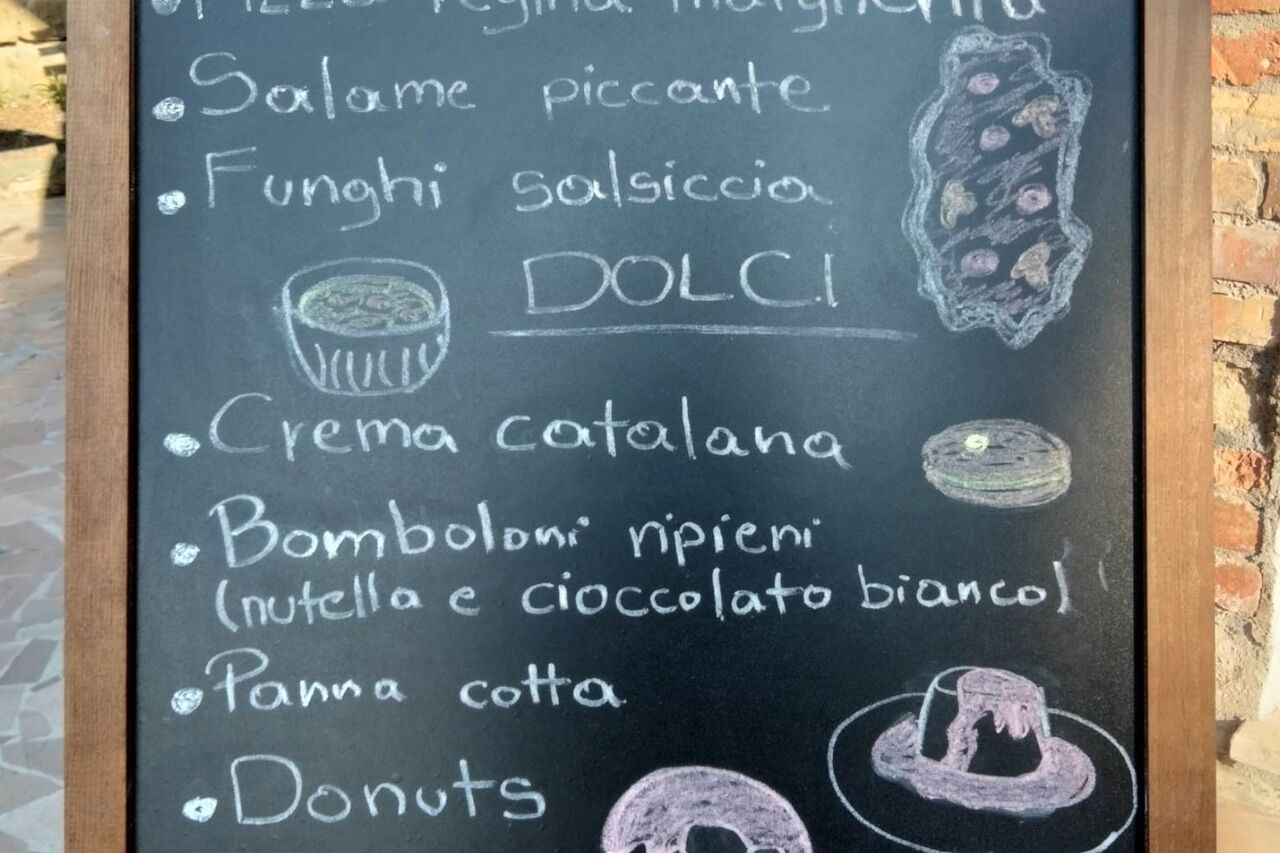 Pizza regina margherita
Salame piccante
Funghi salsiccia
DOLCI
Crema catalana
Bomboloni ripieni
(nutella e cioccolato bianco)
Panna cotta
Donuts